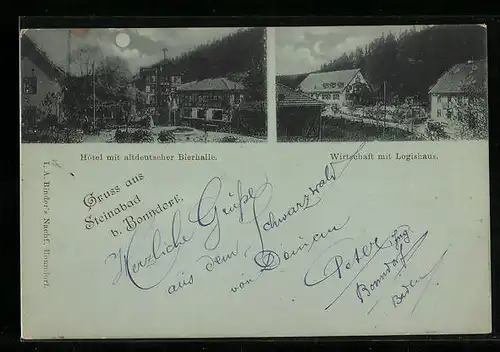 Hôtel mit altdeutscher Bierhalle.
Wirtschaft mit Logishaus.
Gruss aus
Steinabad
b. Bonndorf.
Herzliche Grüße
aus dem Schwarzwald
von
Peter
Bonndorf
Baden
I. A. Binder's Nachf. Bonndorf.